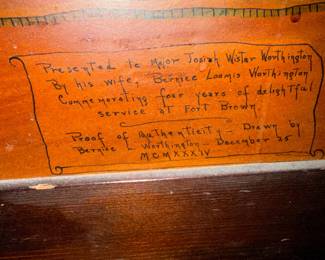 Presented to Major Josiah Wistar Worthington
By his wife, Bernice Loomis Worthington
Commemorating four years of delightful
service at Fort Brown.
Proof of authenticity - Drawn by
Bernice L Worthington - December 25
MCMXXXIV